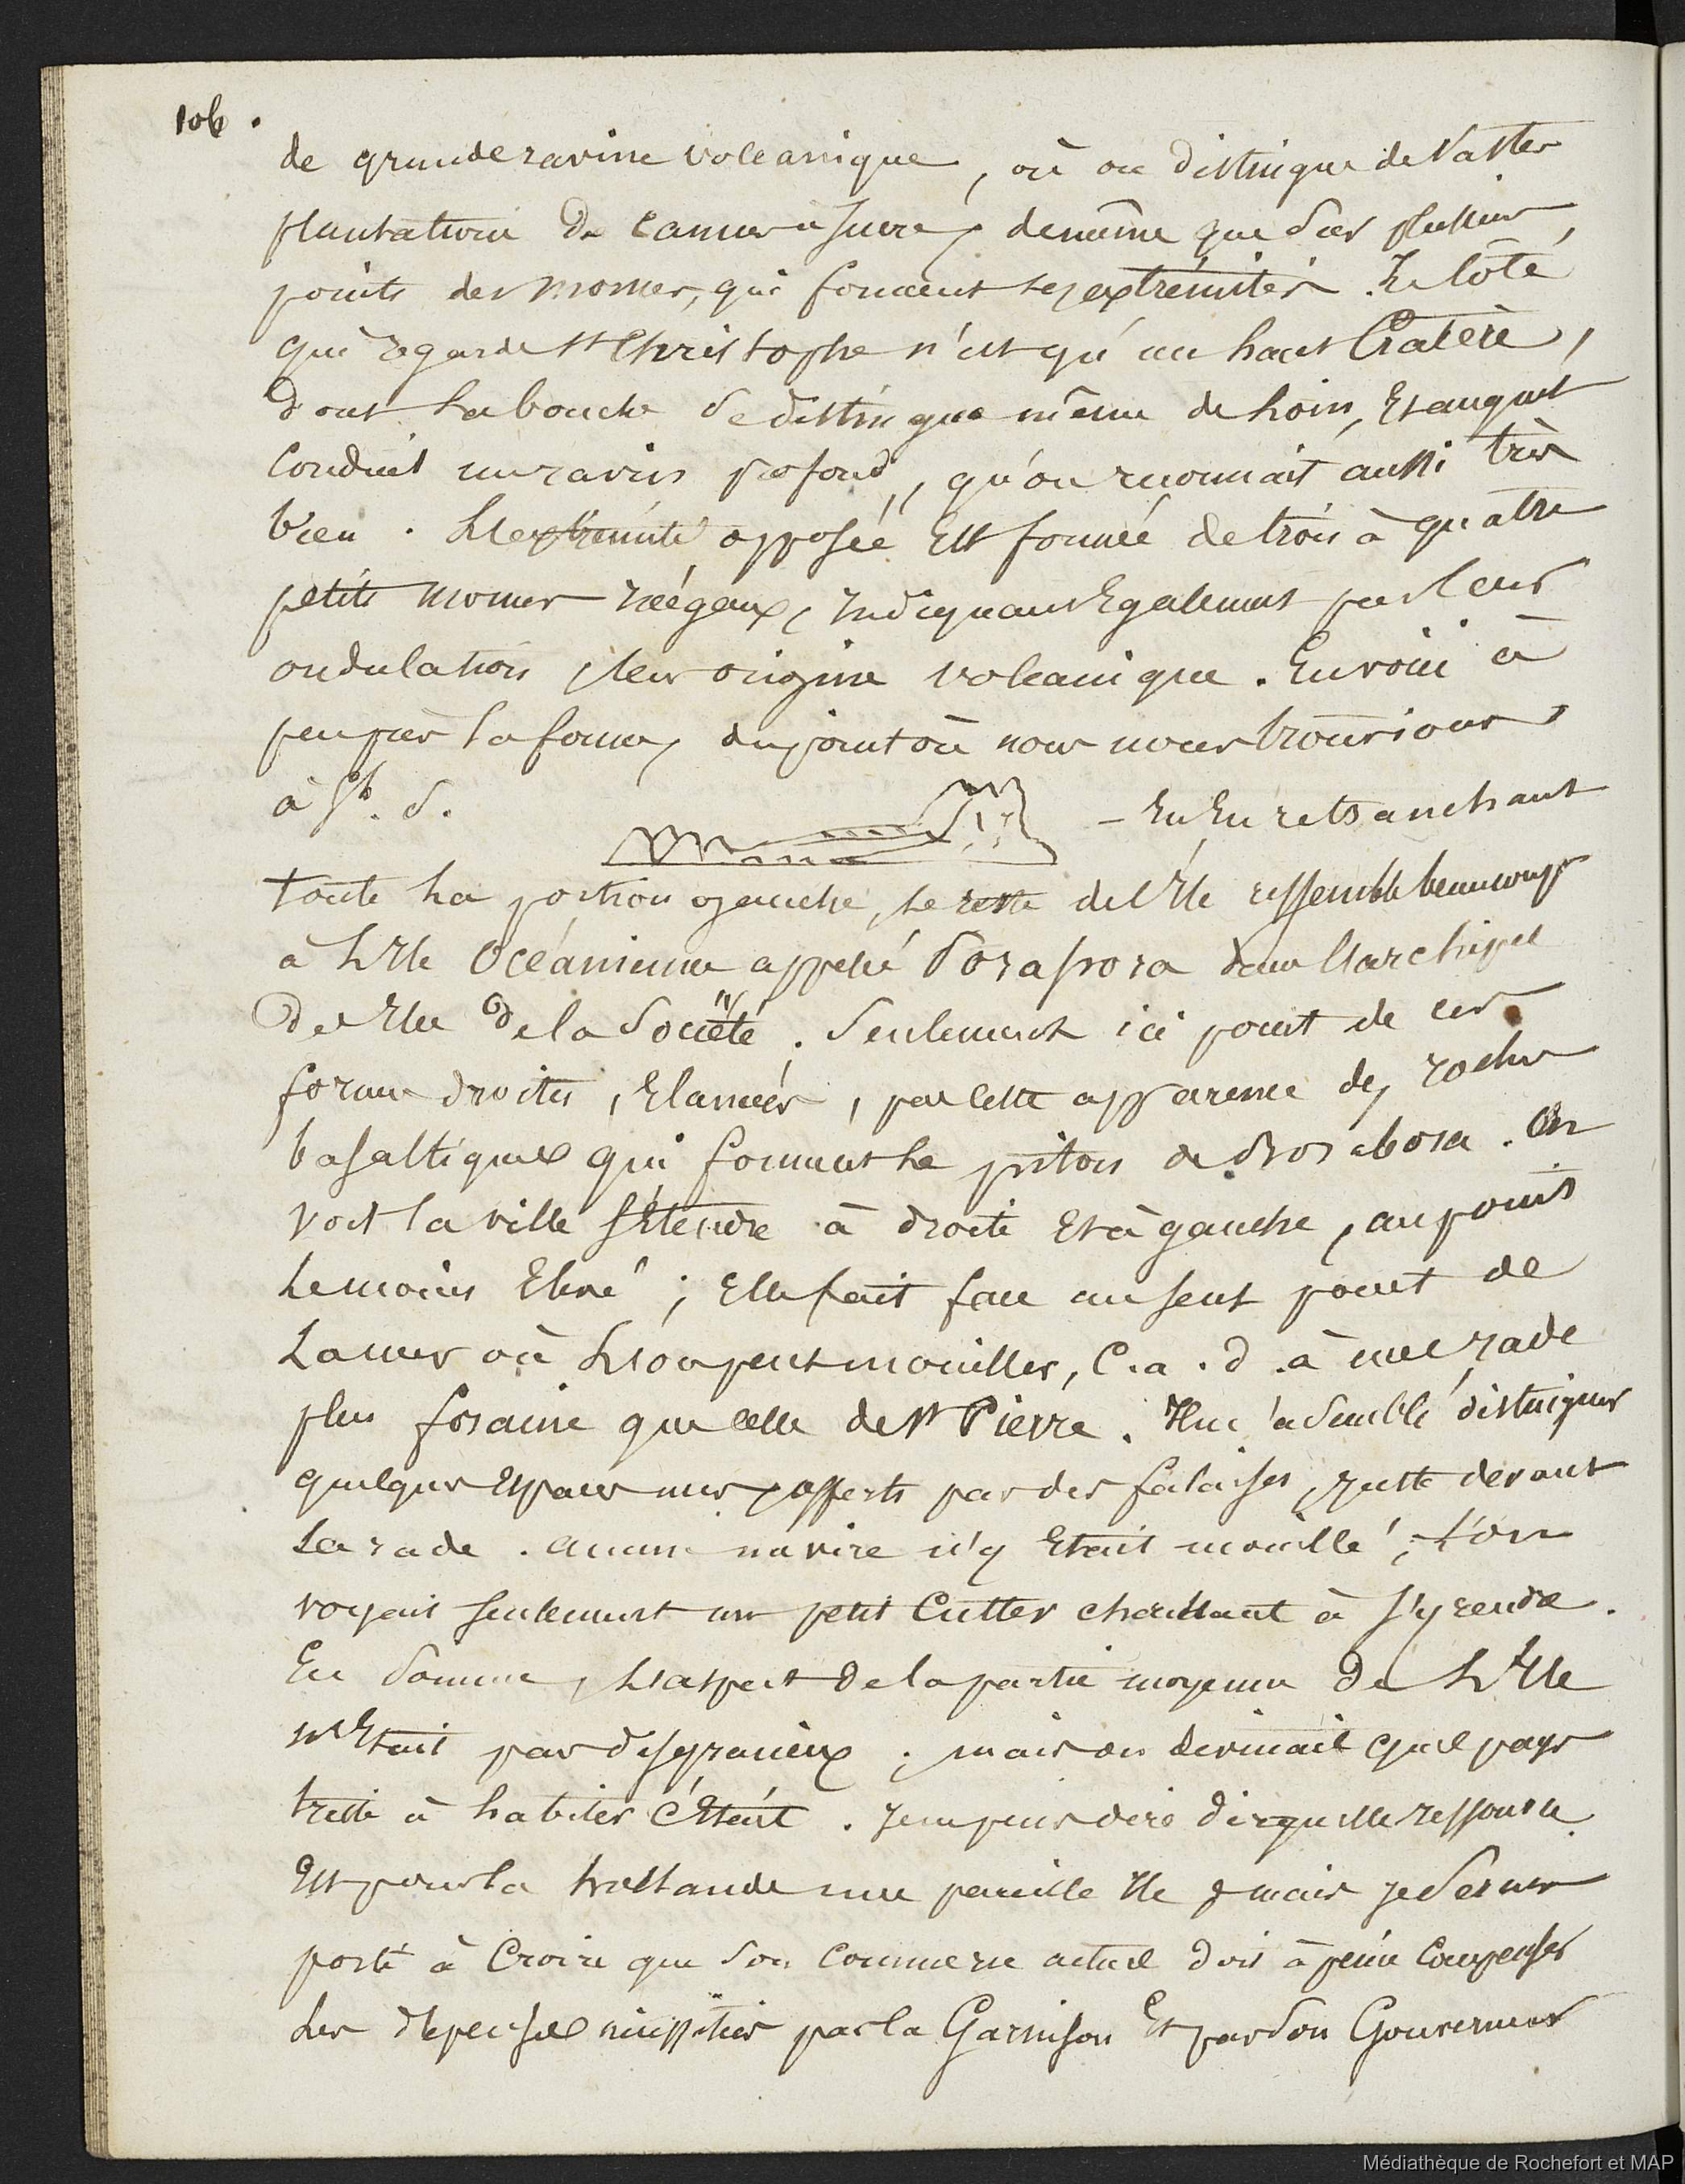 106.
de grande ravine volcanique, où on distingue de vastes
plantations de cannes à sucre, de même que sur plusieurs
points des mornes, qui forment ses extrémités. Le côté
qui regarde St Christophe n'est qu'un haut Cratère,
dont la bouche se distingue même de loin, Et auquel
Conduit un ravin profond, qu'on reconnait aussi très
bien. L'extrémité opposée Est formée de trois à quatre
petits mornes inégaux, Indiquant Egalement par leurs
ondulations, leur origine volcanique. En voici à
peu près la forme, du point où nous nous trouvions
à
– En En retranchant
toute la portion gauche, le reste de l'Ile ressemble beaucoup
à l'Ile Océanienne appelé Borapora dans l'archipel
des Iles de la Société. Seulement ici point de ces
formes droites, Elancées, pas cette apparence des roches
basaltiques qui forment le piton de Borabora. On
voit la ville s'Etendre à droite Et à gauche, au point
le moins Elevé; Elle fait face au seul point de
la mer où l'on peut mouiller, C.a.d. à une rade
plus foraine que celle de St Pierre. Il m'a semblé distinguer
quelques Espaces nus, offerts par des falaises, juste devant
la rade. aucun navire n'y Etait mouillé; l'on
voyait seulement un petit Cutter cherchant à s'y rendre.
En somme, l'aspect de la partie moyenne de l'Ile
n'Etait pas disgracieux; mais on devinait quel pays
triste à habiter c'Etait. Je ne puis dire de quelle ressource
Est pour la hollande une pareille Ile, mais je serais
porté à Croire que son commerce actuel doit à peine Compenser
les dépenses nécessitées par la Garnison Et par son Gouverneur
Médiathèque de Rochefort et MAP